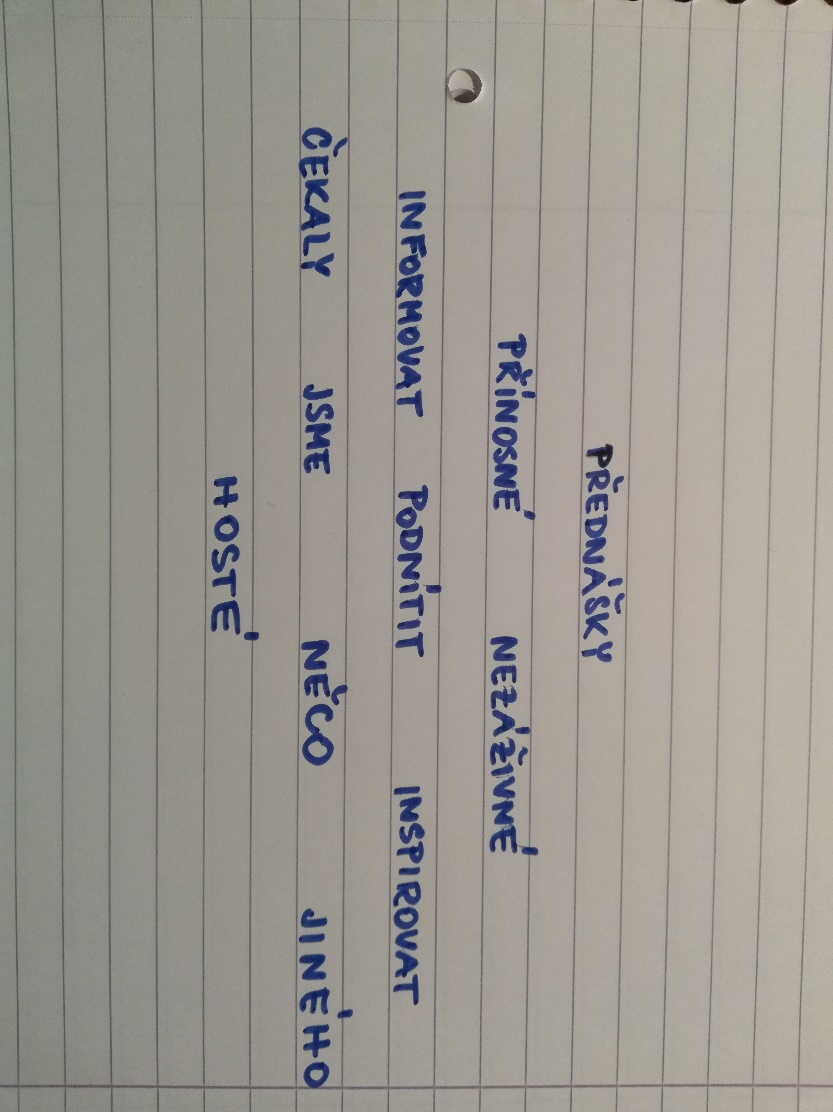 PŘEDNÁŠKY
PŘÍNOSNÉ NEZÁŽIVNÉ
INFORMOVAT PODNÍTIT INSPIROVAT
ČEKALY JSME NĚCO JINÉHO
HOSTÉ